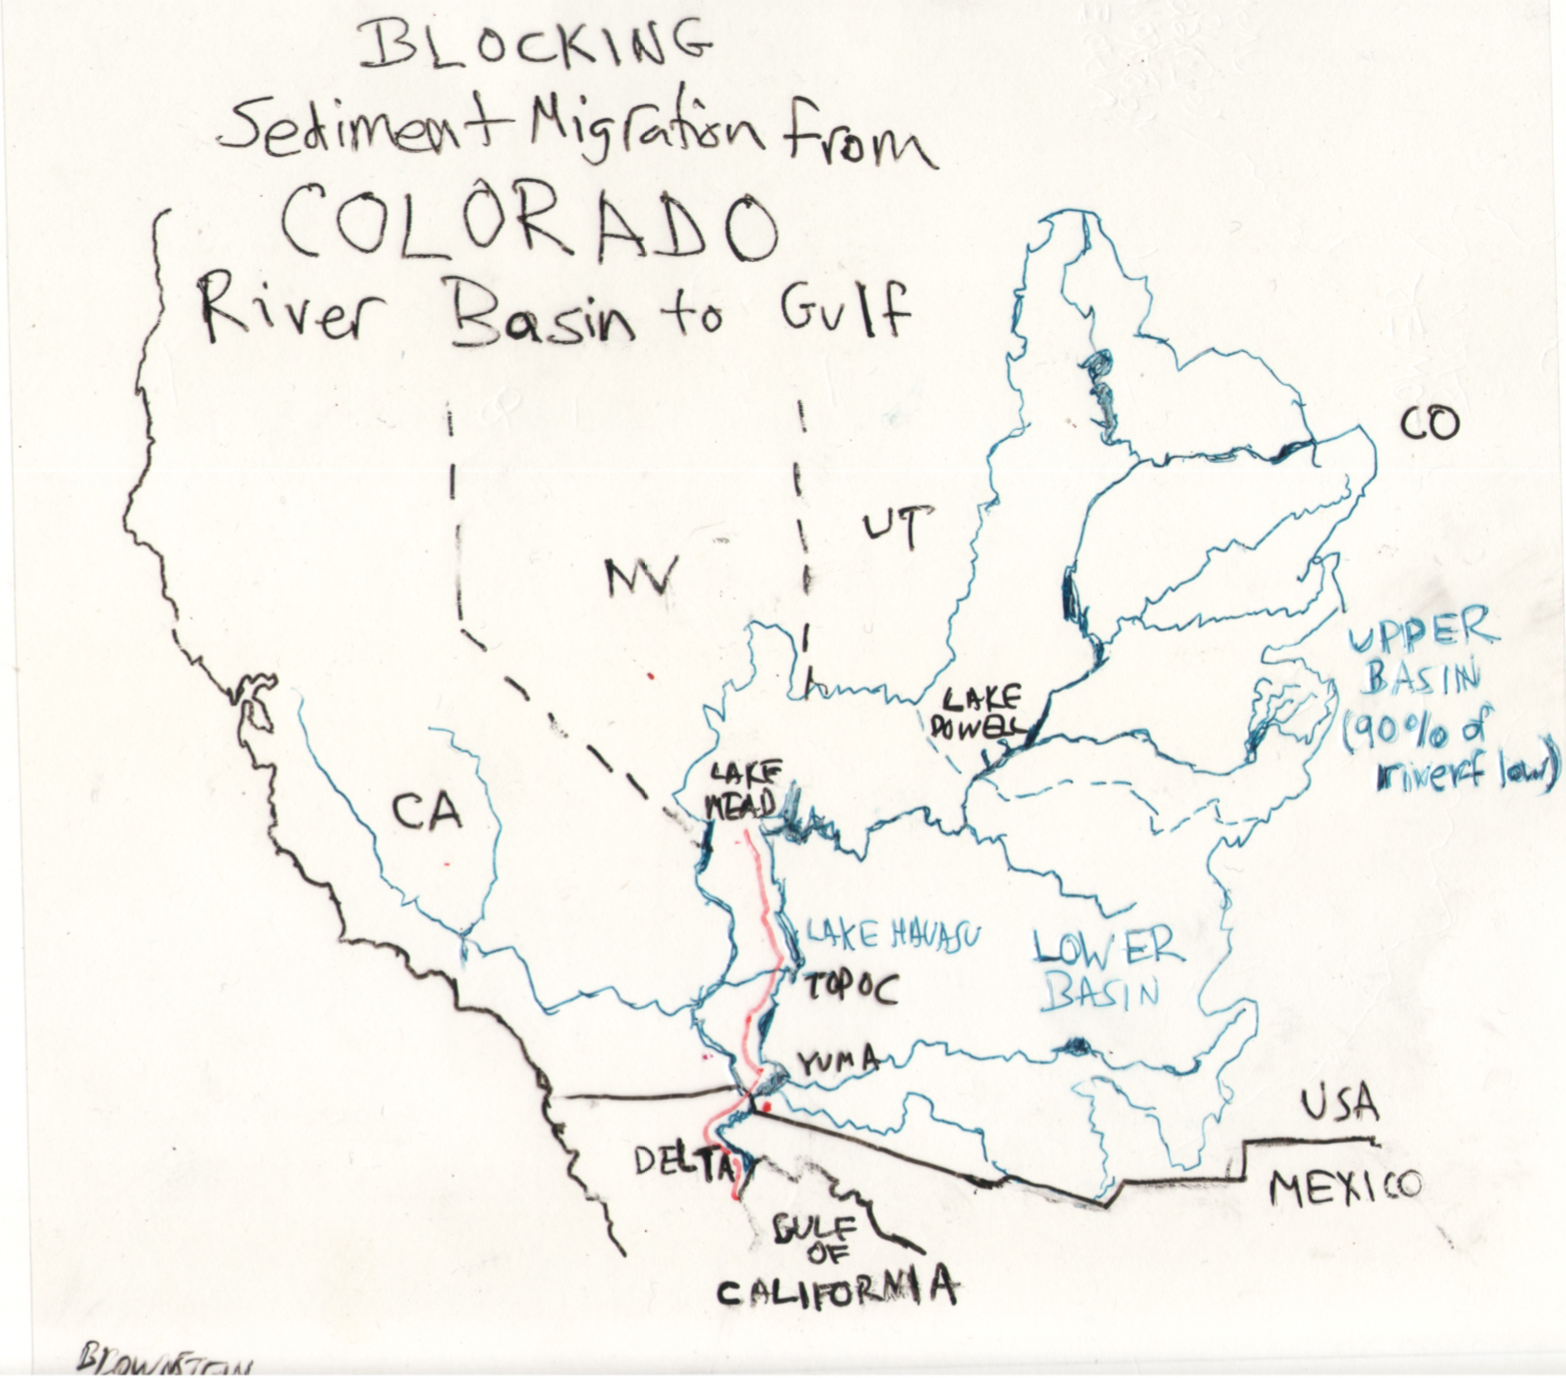 BLOCKING
Sediment Migration from
COLORADO
River Basin to Gulf
CO
UT
NV
UPPER
BASIN
(90% of
riverflow)
LAKE
POWELL
LAKE
MEAD
CA
LAKE HAVASU
LOWER
BASIN
TOPOC
YUMA
USA
DELTA
MEXICO
GULF
OF
CALIFORNIA
BROWNSTEIN